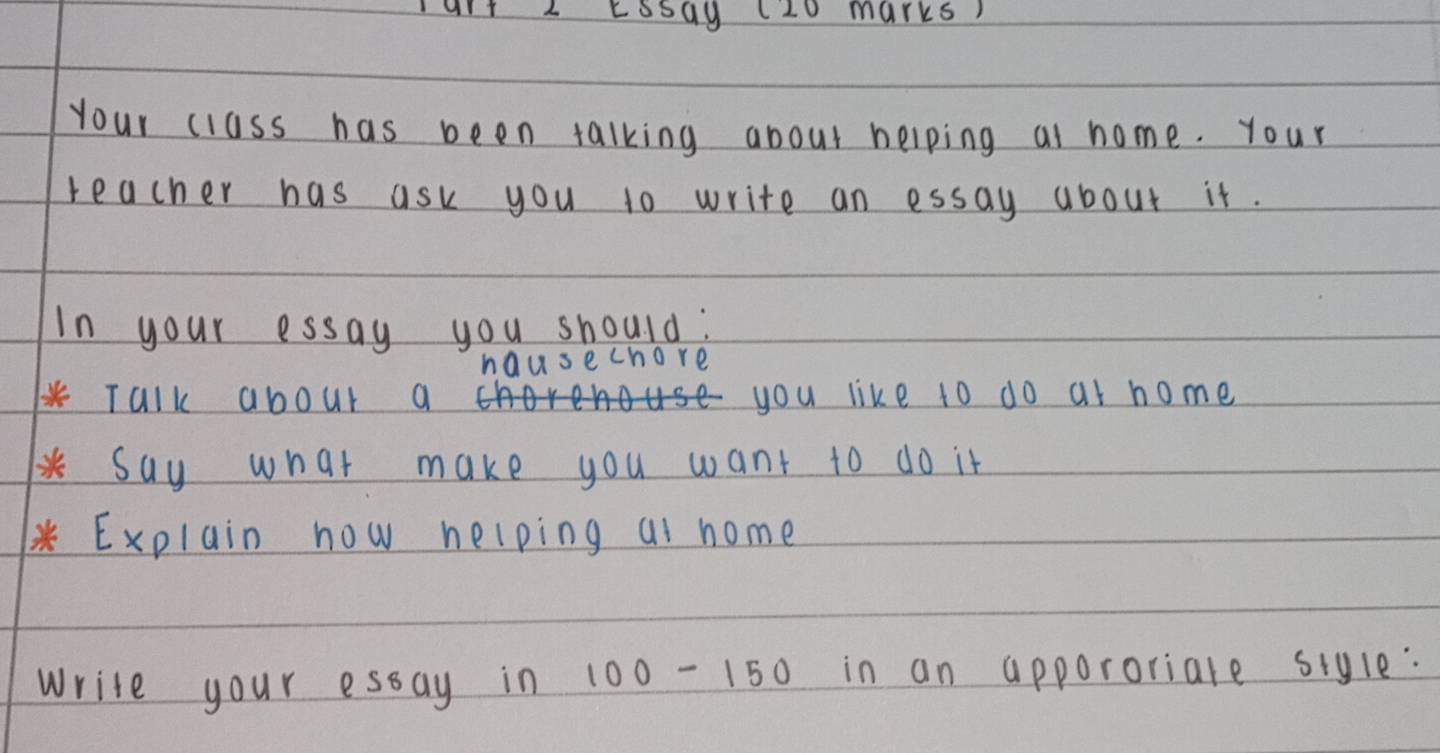 Part 2 Essay (20 marks)
Your class has been talking about helping at home. Your
teacher has ask you to write an essay about it.
In your essay you should:
hausechore
* Talk about a chorehouse you like to do at home
* Say what make you want to do it
* Explain how helping at home
Write your essay in 100 - 150 in an appororiate style: